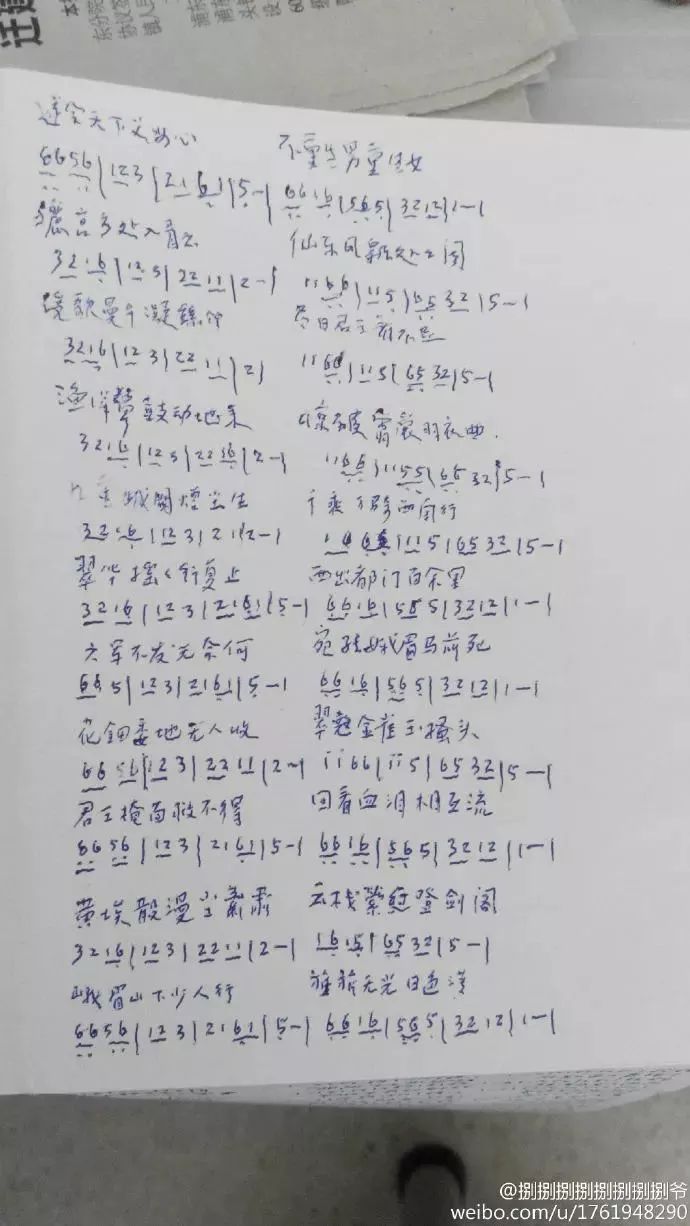 遂令天下父母心 不重生男重生女
6656|123|2161|5-| 6616|565|3212|1-|
骊宫高处入青云 仙乐风飘处处闻
3216|123|2211|2-| 1166|115|6532|5-|
缓歌曼午凝丝竹 尽日君王看不足
3216|123|2211|2| 1166|115|6532|5-|
渔阳鼙鼓动地来 惊破霓裳羽衣曲.
3216|123|2216|2-| 1166|1155|65 32|5-|
九重城闕烟尘生 千乘万骑西南行
3216|123|21|2-| 115|65 32|5-|
翠华摇〻行复止 西出都门百余里
3216|123|2161|5-| 6616|565|3212|1-|
六军不发无奈何 宛转蛾眉马前死
665|123|2161|5-| 6616|565|3212|1-|
花钿委地无人收 翠翘金雀玉搔头
6656|123|2211|2-| 1166|115|65 32|5-|
君王掩面救不得 回看血泪相互流
6656|123|2161|5-| 6616|565|3212|1-|
黄埃散漫尘萧肃 云栈萦登剑阁
3216|123|2211|2-| 1615|65 32|5-|
峨眉山下少人行 无光日色
6656|123|2161|5-| 6616|565|3212|1-|
本
浦东
@捌捌捌捌捌捌捌捌捌爷
weibo.com/u/1761948290